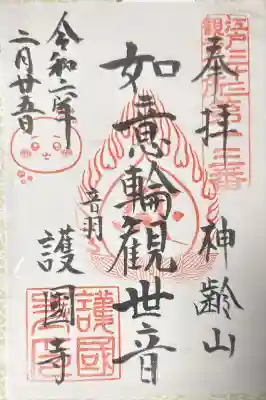 江戸三十三
観音第十三番
奉拝
神齢山
如意輪観世音
音羽
護国寺
護國
令和六年
二月廿五日